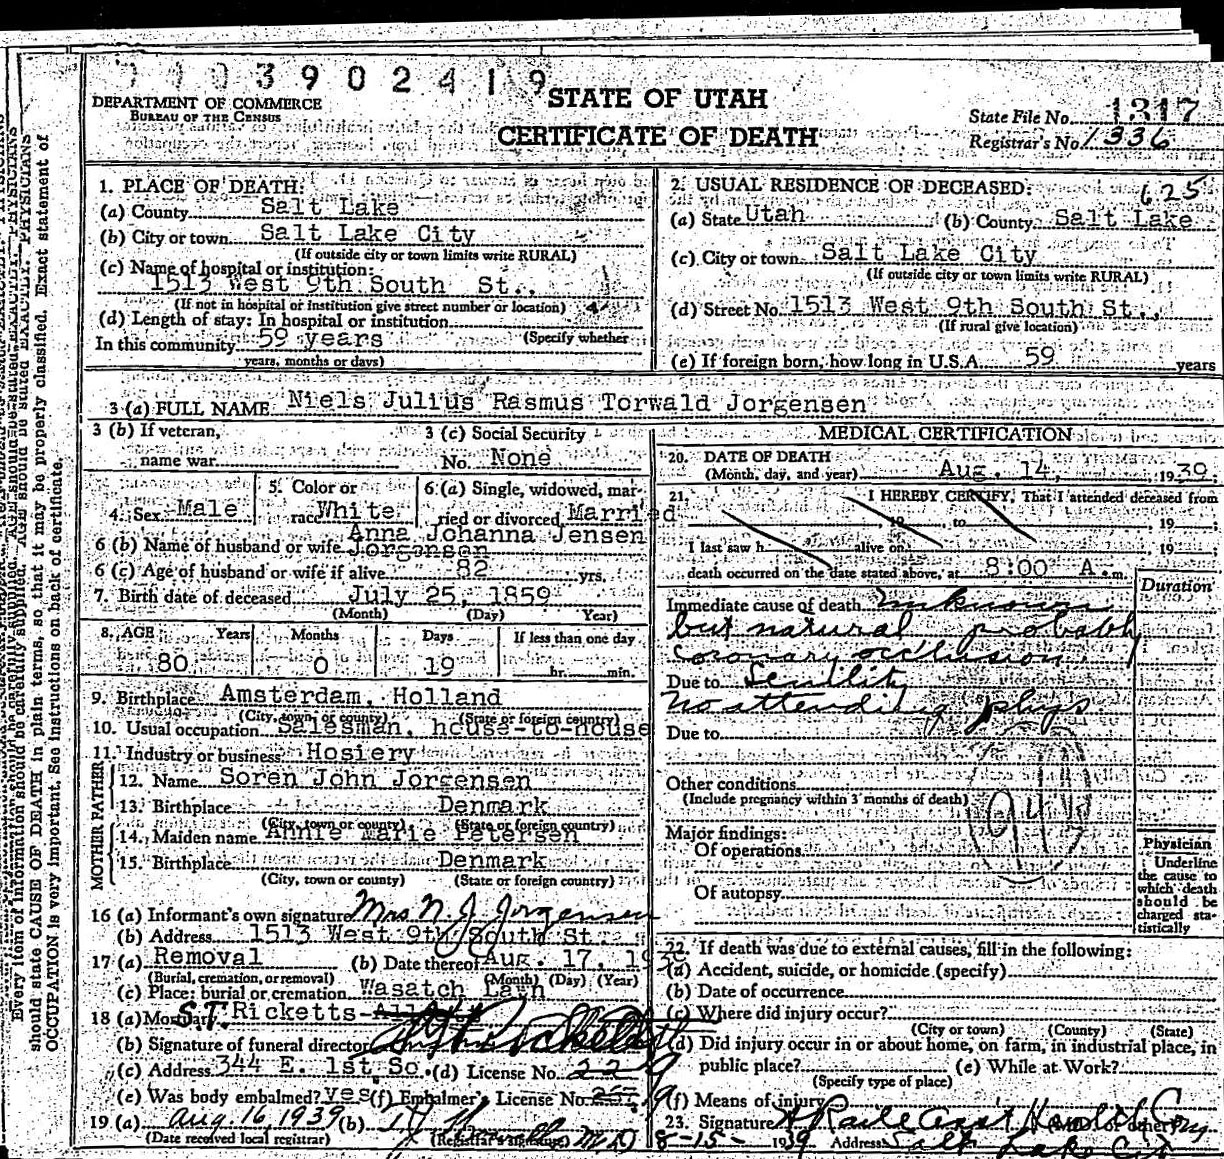 3902419
DEPARTMENT OF COMMERCE
BUREAU OF THE CENSUS
STATE OF UTAH
CERTIFICATE OF DEATH
State File No. 1317
Registrar's No. 1336
Every item of information should be carefully supplied. AGE should be stated EXACTLY. PHYSICIANS
should state CAUSE OF DEATH in plain terms, so that it may be properly classified. Exact statement of
OCCUPATION is very important. See instructions on back of certificate.
1. PLACE OF DEATH:
(a) County Salt Lake
(b) City or town Salt Lake City
(If outside city or town limits write RURAL)
(c) Name of hospital or institution:
1513 West 9th South St.,
(If not in hospital or institution give street number or location)
(d) Length of stay: In hospital or institution
In this community 59 years (Specify whether
years, months or days)
2. USUAL RESIDENCE OF DECEASED: 625
(a) State Utah (b) County Salt Lake
(c) City or town Salt Lake City
(If outside city or town limits write RURAL)
(d) Street No. 1513 West 9th South St.,
(If rural give location)
(e) If foreign born, how long in U.S.A. 59 years
3 (a) FULL NAME Niels Julius Rasmus Torwald Jorgensen
3 (b) If veteran,
name war
3 (c) Social Security
No. None
4. Sex Male
5. Color or
race White
6. (a) Single, widowed, mar-
ried or divorced Married
Anna Johanna Jensen
6 (b) Name of husband or wife Jorgensen
6 (c) Age of husband or wife if alive 82 yrs.
7. Birth date of deceased July 25, 1859
(Month) (Day) Year)
8. AGE Years Months Days If less than one day
80 0 19 hr. min.
9. Birthplace Amsterdam, Holland
(City, town, or county) (State or foreign country)
10. Usual occupation Salesman, house-to-house
11. Industry or business Hosiery
FATHER
12. Name Soren John Jorgensen
13. Birthplace Denmark
(City, town or county) (State or foreign country)
MOTHER
14. Maiden name Annie Marie Petersen
15. Birthplace Denmark
(City, town or county) (State or foreign country)
16 (a) Informant's own signature Mrs N J Jorgensen
(b) Address 1513 West 9th South St.
17 (a) Removal (b) Date thereof Aug. 17, 193
(Burial, cremation, or removal) (Month) (Day) (Year)
(c) Place: burial or cremation Wasatch Lawn
18 (a) Mortuary S.T. Ricketts
(b) Signature of funeral director
(c) Address 344 E. 1st So. (d) License No. 229
(e) Was body embalmed? yes (f) Embalmer's License No.
19 (a) Aug. 16, 1939 (b) M D
(Date received local registrar) (Registrar's signature)
MEDICAL CERTIFICATION
20. DATE OF DEATH
(Month, day, and year) Aug. 14, 1939
21. I HEREBY CERTIFY, That I attended deceased from
, 19 , to , 19 ;
I last saw h alive on , 19 ;
death occurred on the date stated above, at 8:00 A.m.
Duration
Immediate cause of death Unknown
but natural probably
coronary occlusion
Due to Senility
No attending phys
Due to
Other conditions
(Include pregnancy within 3 months of death)
94
Major findings:
Of operations
Of autopsy
Physician
Underline
the cause to
which death
should be
charged sta-
tistically
22. If death was due to external causes, fill in the following:
(a) Accident, suicide, or homicide (specify)
(b) Date of occurrence
(c) Where did injury occur?
(City or town) (County) (State)
(d) Did injury occur in or about home, on farm, in industrial place, in
public place? (e) While at Work?
(Specify type of place)
(f) Means of injury
23. Signature
8-15-1939 Address Salt Lake City